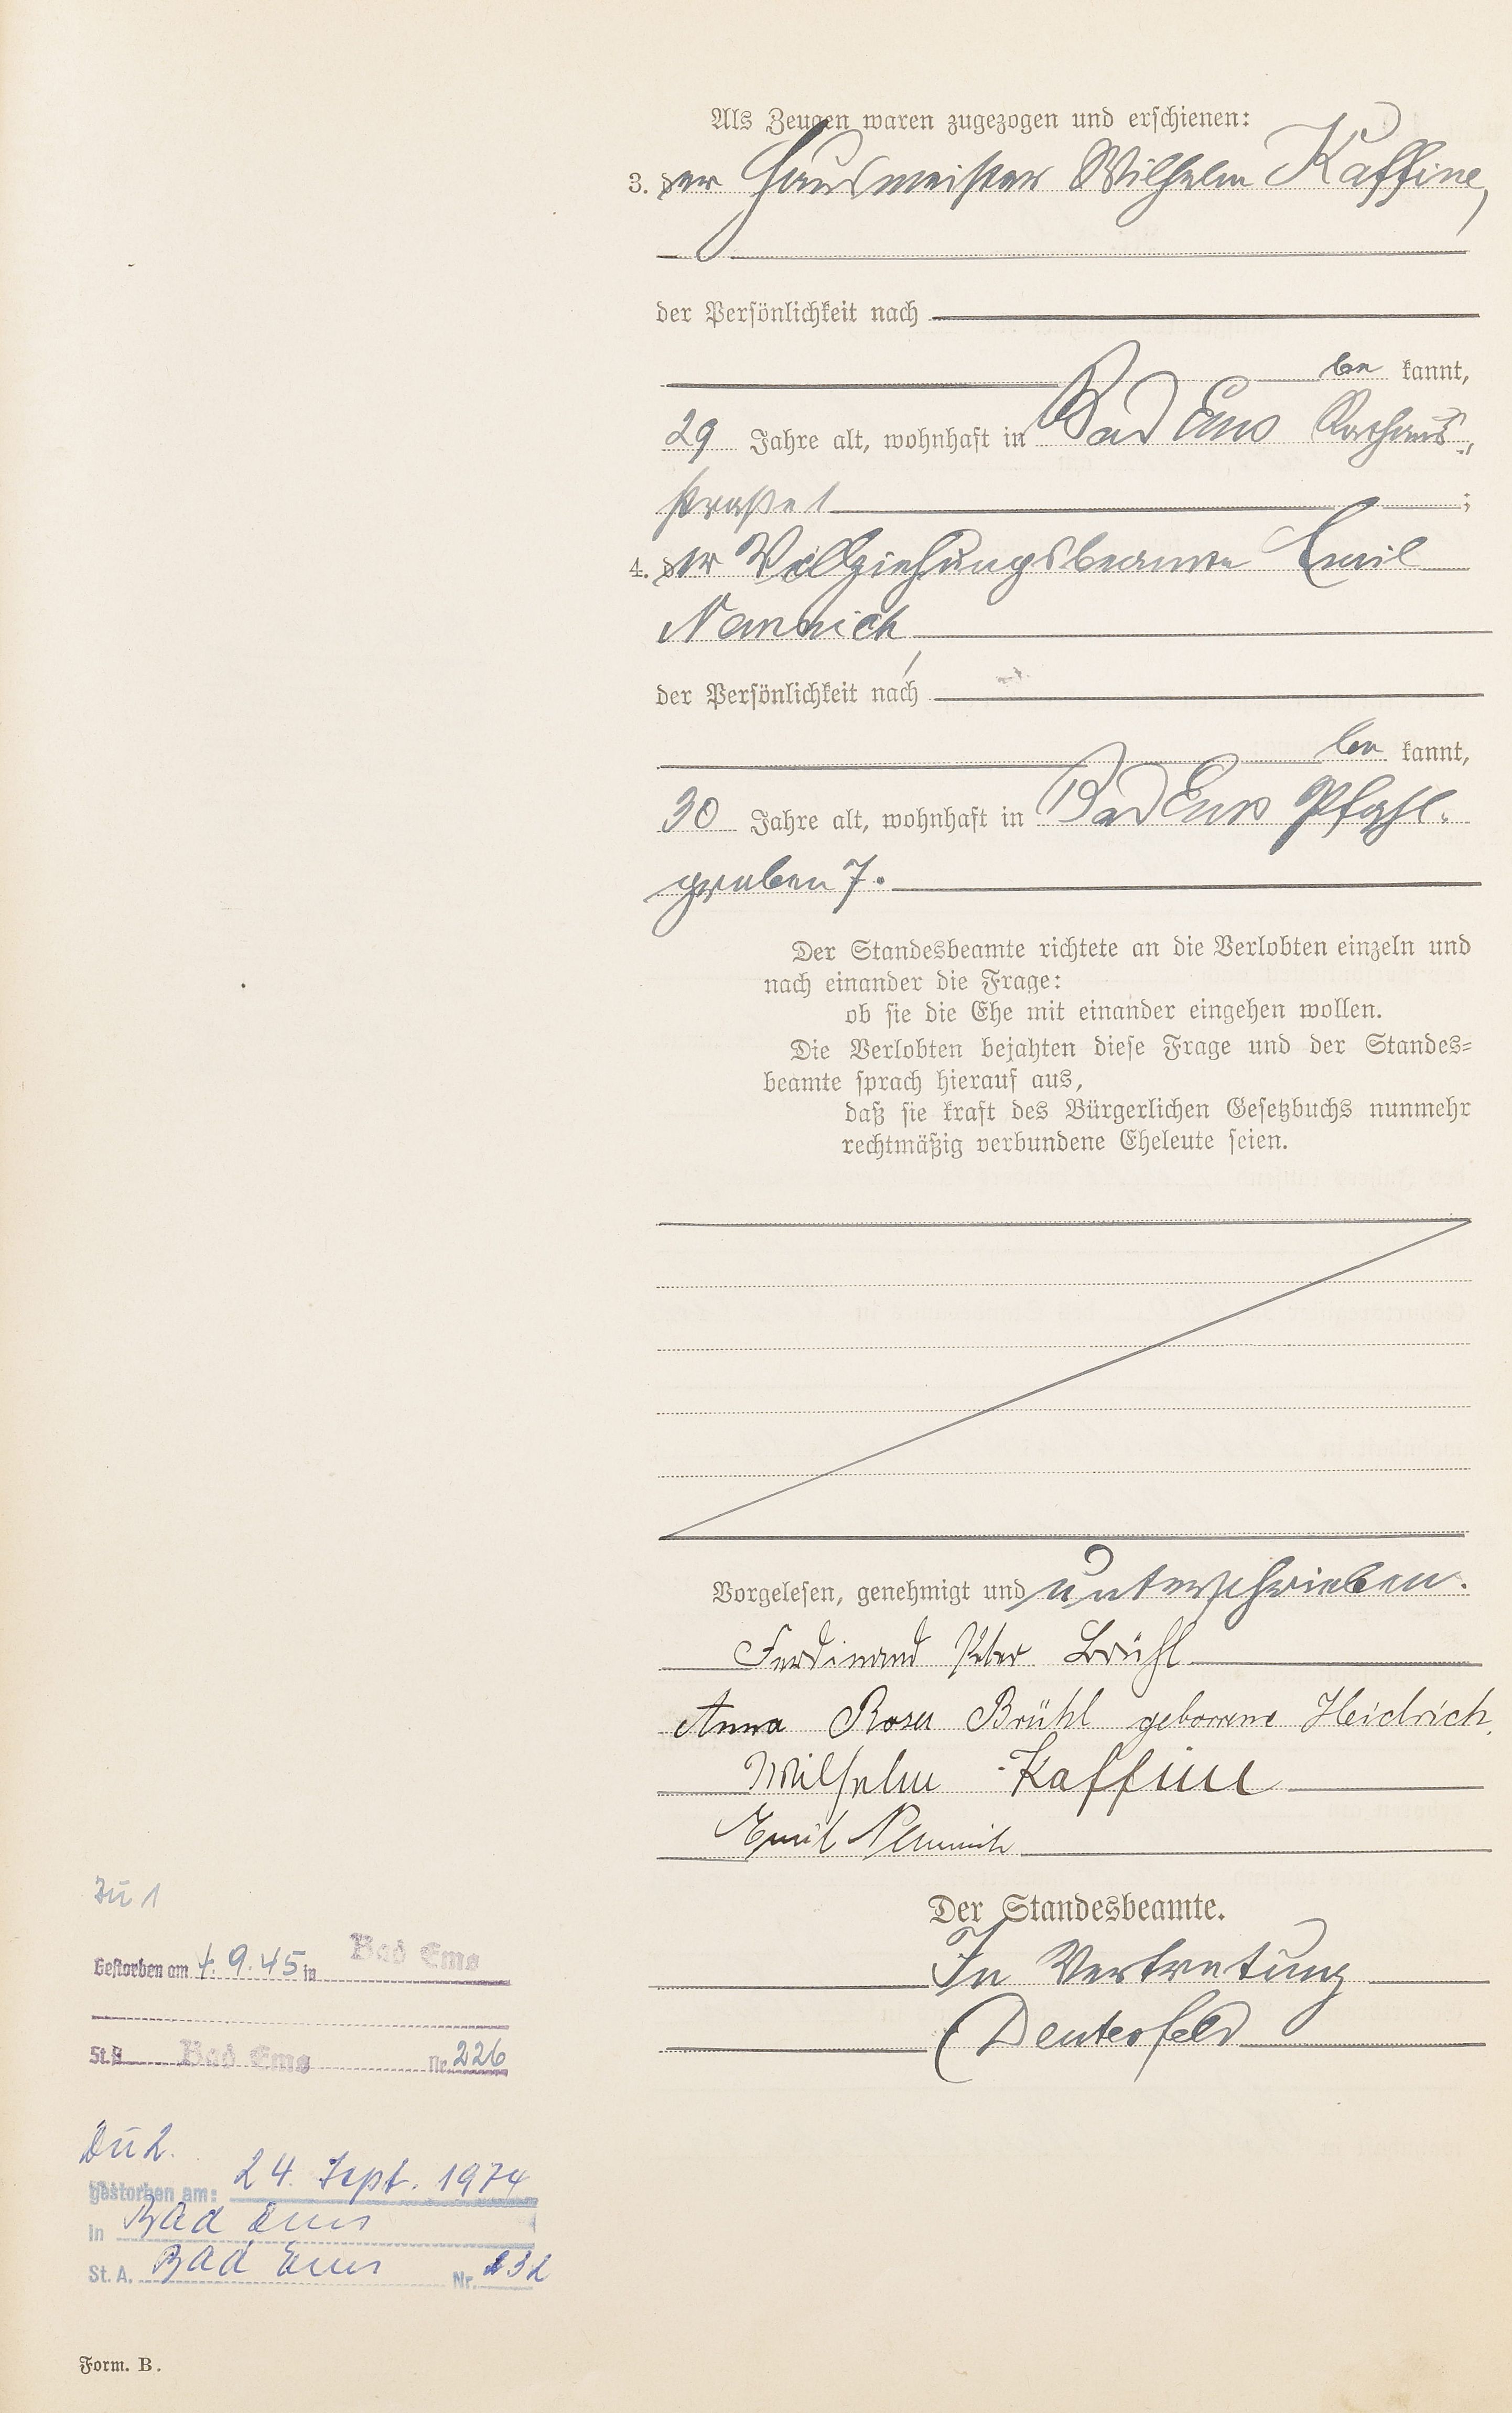 Als Zeugen waren zugezogen und erschienen:
3. der Hausmeister Wilhelm Kaffine,
der Persönlichkeit nach
be kannt,
29 Jahre alt, wohnhaft in Bad Ems Rathaus-
straße 1 ;
4. der Vollziehungsbeamte Emil
Nemnich,
der Persönlichkeit nach
be kannt,
30 Jahre alt, wohnhaft in Bad Ems Pfahl-
graben 7.
Der Standesbeamte richtete an die Verlobten einzeln und
nach einander die Frage:
ob sie die Ehe mit einander eingehen wollen.
Die Verlobten bejahten diese Frage und der Standes-
beamte sprach hierauf aus,
daß sie kraft des Bürgerlichen Gesetzbuchs nunmehr
rechtmäßig verbundene Eheleute seien.
Vorgelesen, genehmigt und unterschrieben.
Ferdinand Peter Brühl
Anna Rosa Brühl geborene Heidrich.
Wilhelm Kaffine
Emil Nemnich
Der Standesbeamte.
In Vertretung
Deuterfeld
Zu 1
Gestorben am 4.9.45 in Bad Ems
St.A. Bad Ems Nr. 226
Zu 2.
gestorben am: 24. Sept. 1974
in Bad Ems
St. A. Bad Ems Nr. 232
Form. B.